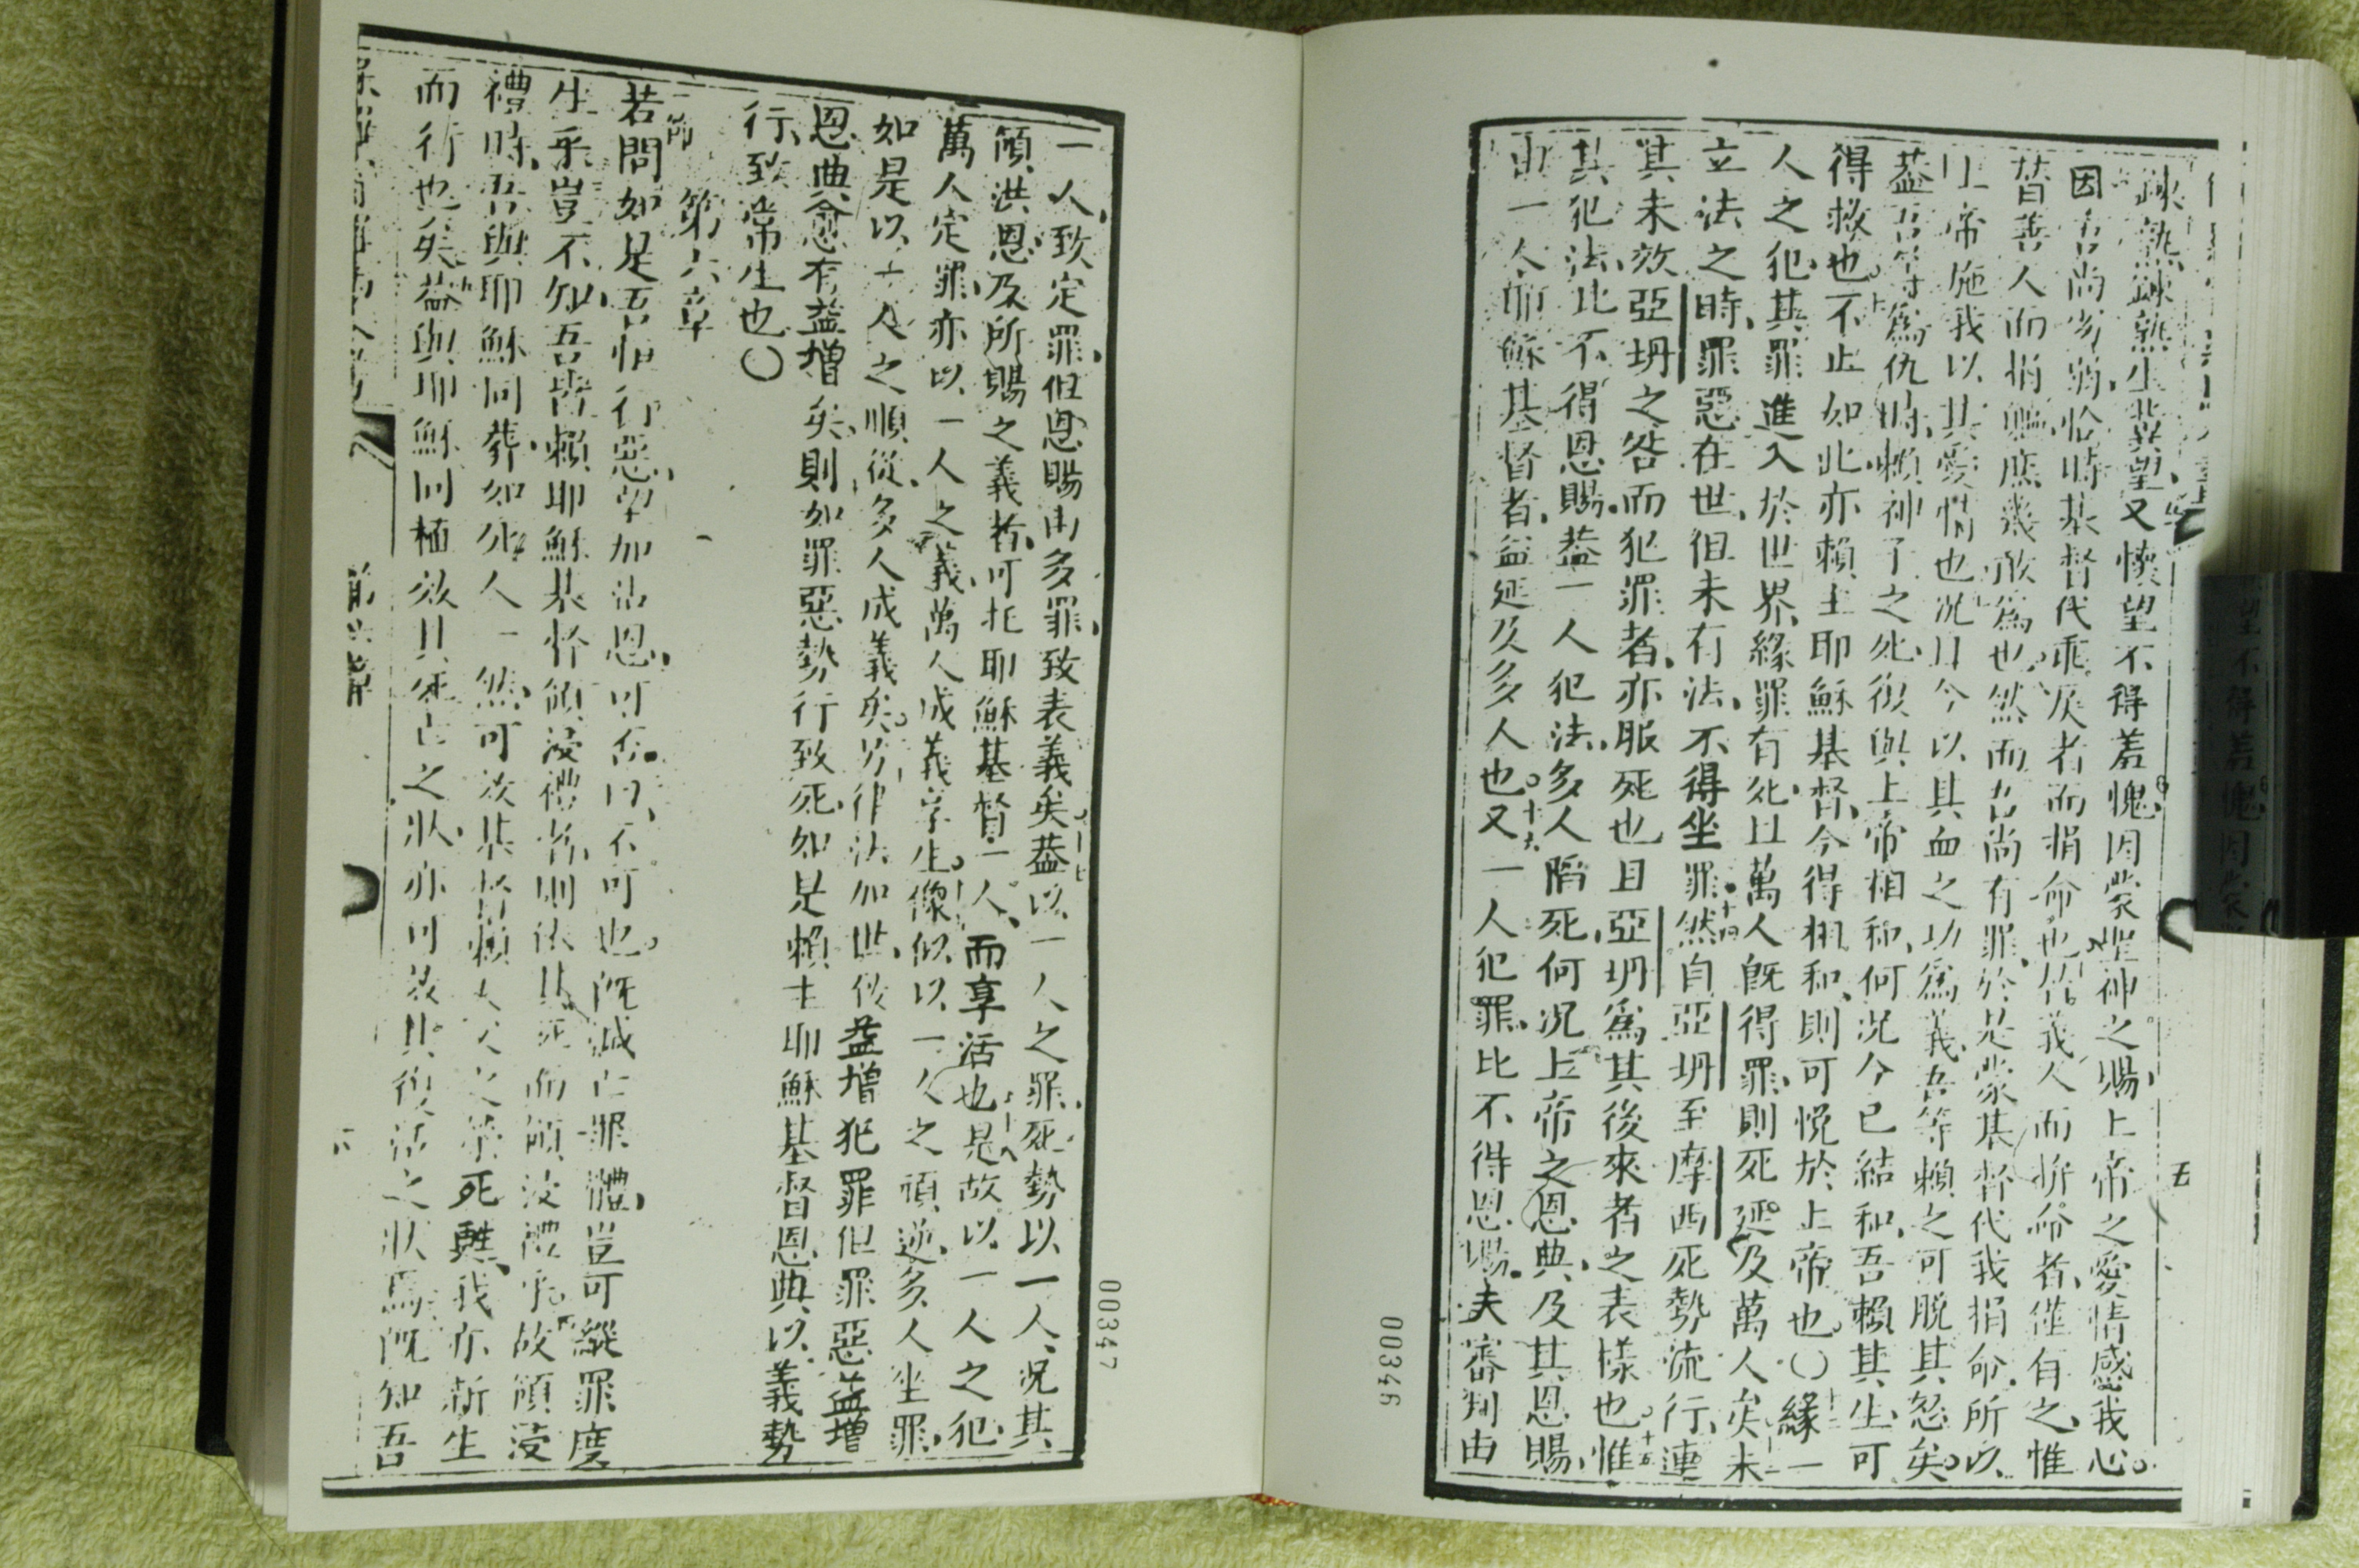 練熟練熟生出異望又懷望不得羞愧因蒙聖神之賜上帝之愛情感我心
因吾尚劣弱恰時基督代乖戾者而捐命也代義人而捐命者僅有之惟
替善人而捐軀庶幾敢為也然而吾尚有罪於是蒙基督代我捐命所以
上帝施我以其愛情也况且今以其血之功為義吾等賴之可脫其忿矣
蓋吾等為仇時賴神子之死復與上帝相和何況今已結和吾賴其生可
得救也不止如此亦賴主耶穌基督今得相和則可悅於上帝也〇緣一
人之犯其罪進入於世界緣罪有死且萬人旣得罪則死延及萬人矣未
立法之時罪惡在世但未有法不得坐罪然自亞坍至摩西死勢流行連
其未效亞坍之咎而犯罪者亦服死也且亞坍為其後來者之表樣也惟
其犯法比不得恩賜蓋一人犯法多人陷死何況上帝之恩典及其恩賜
由一人耶穌基督者益延及多人也又一人犯罪比不得恩賜夫審判由
五
00346
一人致定罪但恩賜由多罪致表義矣蓋以一人之罪死勢以一人況其
領洪恩及所賜之義者可托耶穌基督一人而享活也是故以一人之犯
萬人定罪亦以一人之義萬人成義享生像似以一人之頑逆多人坐罪
如是以一人之順從多人成義矣夫律法加世致益增犯罪但罪惡益增
恩典愈有益增矣則如罪惡勢行致死如是賴主耶穌基督恩典以義勢
行致常生也〇
第六章
若問如是吾恒行惡望加沾恩可否曰不可也旣滅亡罪體豈可縱罪度
生乎豈不知吾皆賴耶穌基督領浸禮者則依其死而領浸禮乎故領浸
禮時吾與耶穌同葬如死人一然可效基督賴天父之榮死甦我亦新生
而行也矣蓋與耶穌同植效其死亡之狀亦可效其復活之狀焉旣知吾
第六章
六
00347